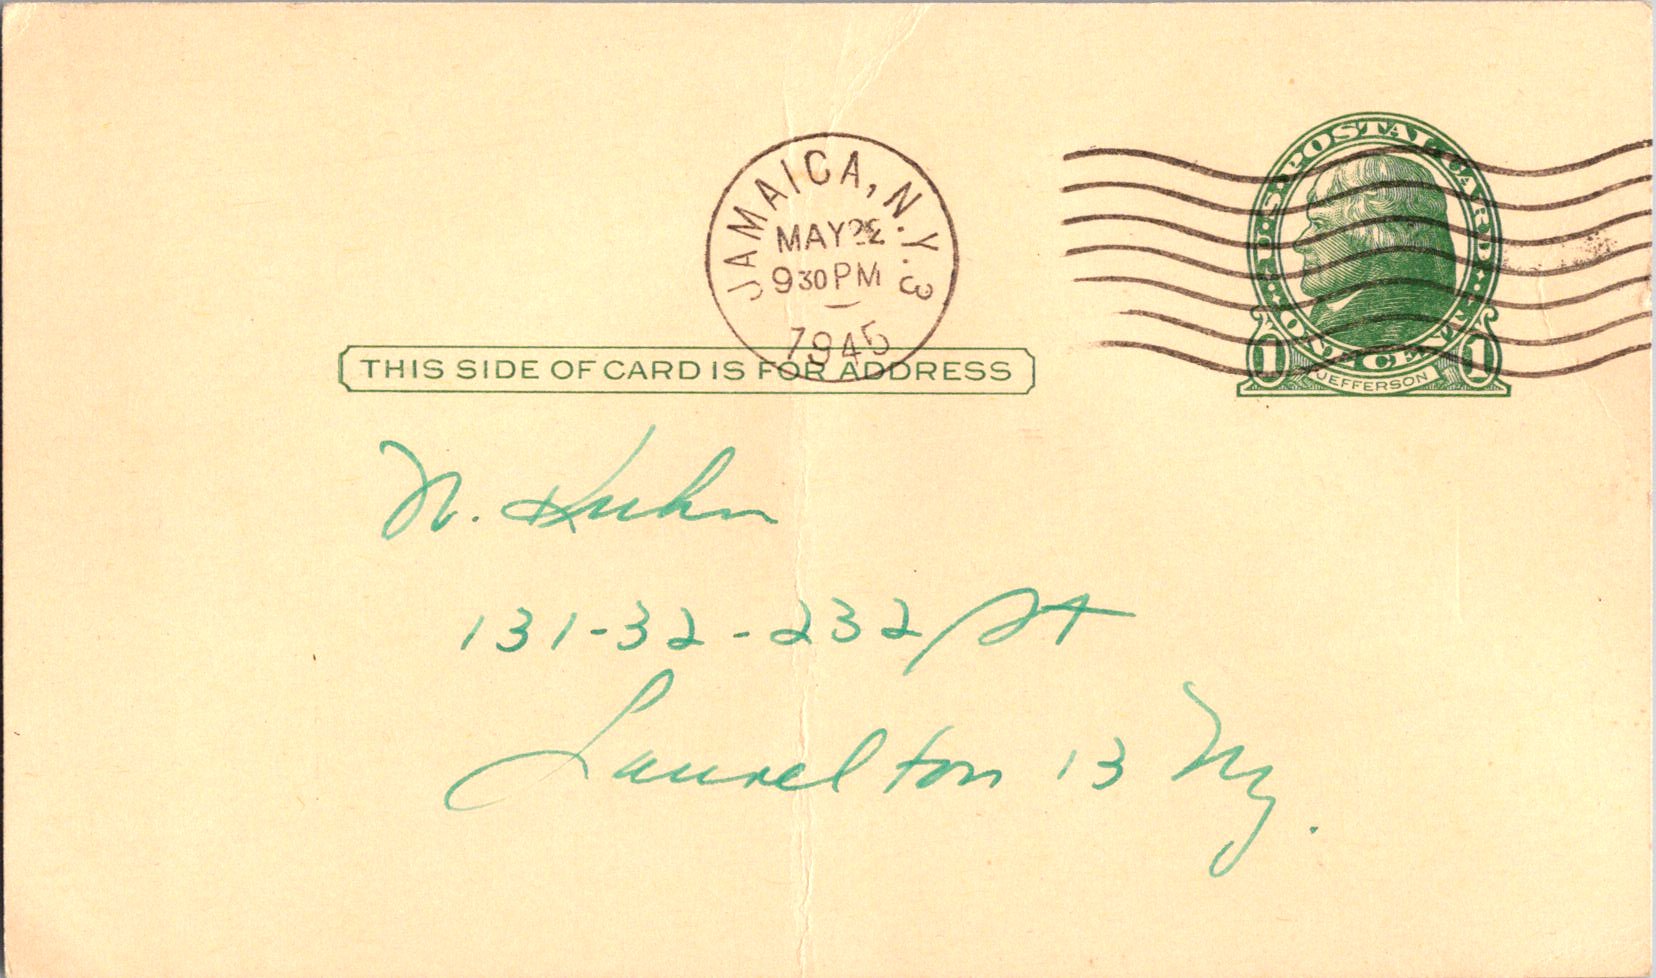 JAMAICA, N.Y. 3
MAY 22
9 30 PM
1945
U.S. POSTAL CARD
ONE CENT
1 1
JEFFERSON
THIS SIDE OF CARD IS FOR ADDRESS
N. Kuhn
131-32-232 St
Laurelton 13 Ny.